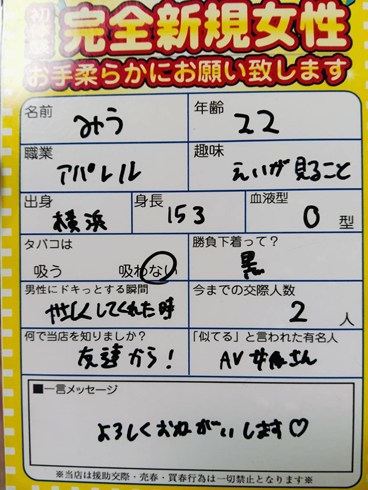 初
完全新規女性
お手柔らかにお願い致します
名前 みう
年齢 22
職業 アパレル
趣味 えいが見ること
出身 横浜
身長 153
血液型 O 型
タバコは
吸う 吸わない
勝負下着って?
黒
男性にドキっとする瞬間
やさしくしてくれた時
今までの交際人数
2 人
何で当店を知りましたか?
友達から!
「似てる」と言われた有名人
AV女優さん
■一言メッセージ
よろしくおねがいします♡
※当店は援助交際・売春・買春行為は一切禁止となります※